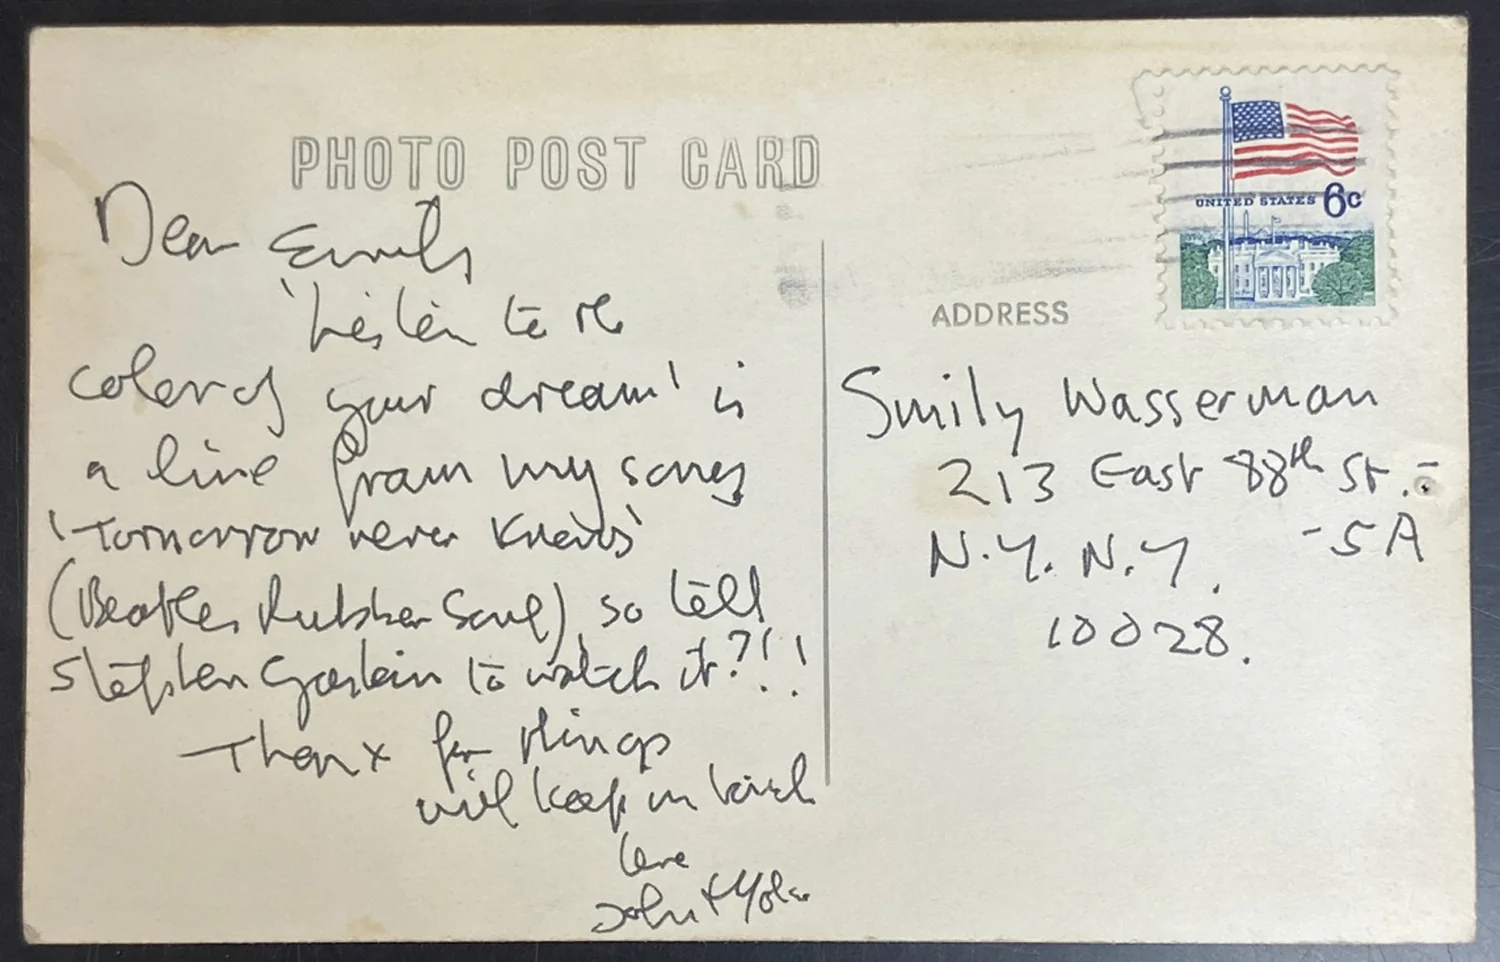 PHOTO POST CARD
Dear Emily
'Listen to the
color of your dream' is
a line from my song
'Tomorrow never Knows'
(Beatles Rubber Soul), so tell
Stephen to watch it?!!
Thanx for things
will keep in touch
love
John + Yoko
UNITED STATES 6c
ADDRESS
Emily Wasserman
213 East 88th St. -
N.Y. N.Y. -5A
10028.